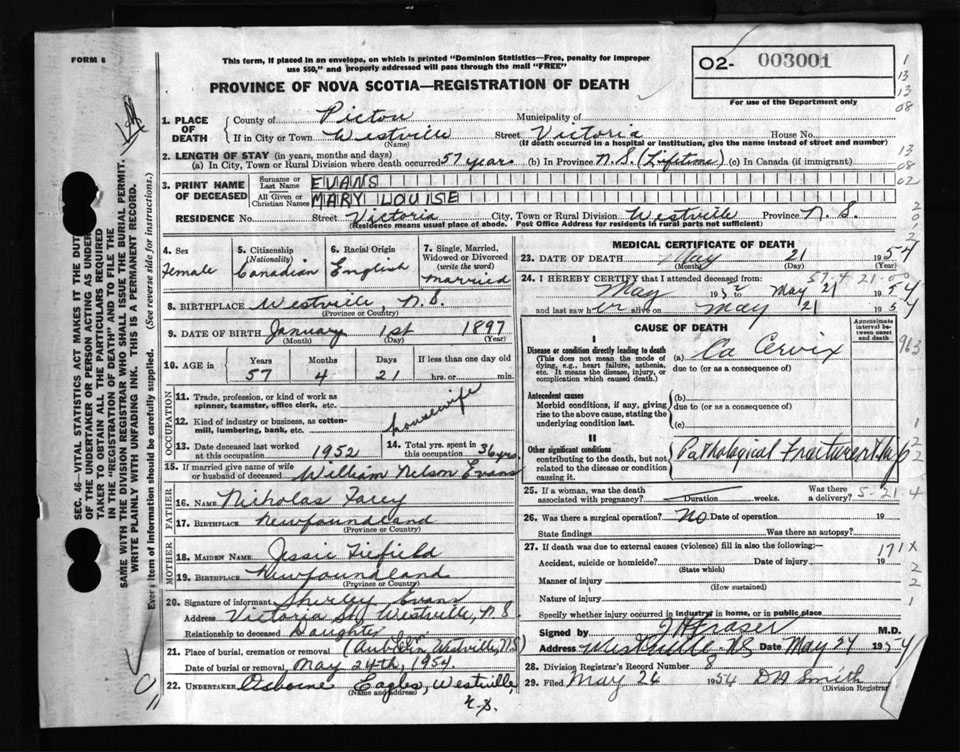 FORM 6
This form, if placed in an envelope, on which is printed "Dominion Statistics—Free, penalty for improper
use $50," and properly addressed will pass through the mail "FREE"
02- 003001
For use of the Department only
PROVINCE OF NOVA SCOTIA—REGISTRATION OF DEATH
1. PLACE OF DEATH
County of Pictou Municipality of
If in City or Town Westville Street Victoria House No.
(Name) (If death occurred in a hospital or institution, give the name instead of street and number)
2. LENGTH OF STAY (in years, months and days)
(a) In City, Town or Rural Division where death occurred 57 years (b) In Province N.S. (Lifetime) (c) In Canada (if immigrant)
3. PRINT NAME OF DECEASED
Surname or Last Name EVANS
All Given or Christian Names MARY LOUISE
RESIDENCE No. Street Victoria City, Town or Rural Division Westville Province N.S.
(Residence means usual place of abode. Post Office Address for residents in rural parts not sufficient)
4. Sex Female
5. Citizenship (Nationality) Canadian
6. Racial Origin English
7. Single, Married, Widowed or Divorced (write the word) married
8. BIRTHPLACE Westville, N.S.
(Province or Country)
9. DATE OF BIRTH January 1st 1897
(Month) (Day) (Year)
10. AGE in Years Months Days If less than one day old
57 4 21 hrs. or min.
OCCUPATION
11. Trade, profession, or kind of work as spinner, teamster, office clerk, etc.
housewife
12. Kind of industry or business, as cotton-mill, lumbering, bank, etc.
13. Date deceased last worked at this occupation 1952
14. Total yrs. spent in this occupation 36 yrs
15. If married give name of wife or husband of deceased William Nelson Evans
FATHER
16. NAME Nicholas Facey
17. BIRTHPLACE Newfoundland
(Province or Country)
MOTHER
18. MAIDEN NAME Jessie Fifield
19. BIRTHPLACE Newfoundland
(Province or Country)
20. Signature of informant Shirley Evans
Address Victoria St, Westville, N.S.
Relationship to deceased Daughter
21. Place of burial, cremation or removal Westville, N.S.
Date of burial or removal, May 24th, 1954.
22. UNDERTAKER Osborne Eagles, Westville,
(Name and address)
N.S.
MEDICAL CERTIFICATE OF DEATH
23. DATE OF DEATH May 21 1954
(Month) (Day) (Year)
24. I HEREBY CERTIFY that I attended deceased from:
May 1952 to May 21 1954
and last saw her alive on May 21 1954
CAUSE OF DEATH
Approximate interval between onset and death
I
Disease or condition directly leading to death (a) Ca Cervix
(This does not mean the mode of dying, e.g., heart failure, asthenia, etc. It means the disease, injury, or complication which caused death.)
due to (or as a consequence of)
Antecedent causes
Morbid conditions, if any, giving rise to the above cause, stating the underlying condition last.
(b)
due to (or as a consequence of)
(c)
II
Other significant conditions
contributing to the death, but not related to the disease or condition causing it.
Pathological Fracture Hip
25. If a woman, was the death associated with pregnancy? Duration weeks. Was there a delivery?
5-21-4
26. Was there a surgical operation? No Date of operation 19
State findings Was there an autopsy?
27. If death was due to external causes (violence) fill in also the following:—
171X
Accident, suicide or homicide? Date of injury 19
(State which)
Manner of injury
(How sustained)
Nature of injury
Specify whether injury occurred in industry, in home, or in public place
Signed by J H Fraser M.D.
Address Westville N.S Date May 24 1954
28. Division Registrar's Record Number 8
29. Filed May 26 1954 D A Smith
(Division Registrar)
SEC. 46—VITAL STATISTICS ACT MAKES IT THE DUTY
OF THE UNDERTAKER OR PERSON ACTING AS UNDER-
TAKER TO OBTAIN ALL THE PARTICULARS REQUIRED
IN THE "REGISTRATION OF DEATH" AND TO FILE THE
SAME WITH THE DIVISION REGISTRAR WHO SHALL ISSUE THE BURIAL PERMIT.
WRITE PLAINLY WITH UNFADING INK. THIS IS A PERMANENT RECORD.
Ever item of information should be carefully supplied. (See reverse side for instructions.)